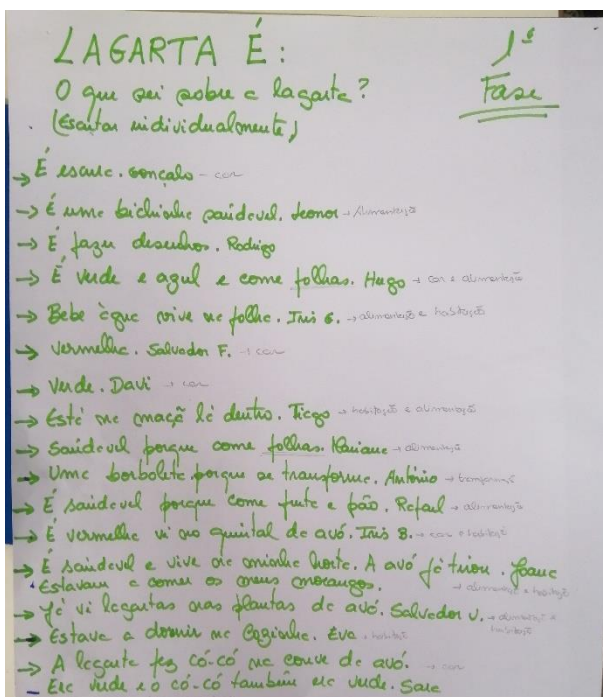 LAGARTA É:
1ª Fase
O que sei sobre a lagarta?
(Escutar individualmente)
→ É escura. Gonçalo - cor
→ É uma bichinha saudável. Leonor → Alimentação
→ É fazer desenhos. Rodrigo
→ É verde e azul e come folhas. Hugo → cor e alimentação
→ Bebe água vive na folha. Iris G. → alimentação e habitação
→ Vermelha. Salvador F. → cor
→ Verde. Davi → cor
→ Está na maçã lá dentro. Tiago → habitação e alimentação
→ Saudável porque come folhas. Mariane → alimentação
→ Uma borboleta porque se transforma. António → transformação
→ É saudável porque come fruta e pão. Rafael → alimentação
→ É vermelha vi no quintal da avó. Iris B. → cor e habitação
→ É saudável e vive na minha horta. A avó já tirou. Joana
Estavam a comer os meus morangos. → alimentação e habitação
→ Já vi lagartas nas plantas da avó. Salvador V. → alimentação e habitação
→ Estava a dormir na caginha. Eva → habitação
→ A lagarta fez có-có na couve da avó. → cor
Era verde e o có-có também era verde. Sara